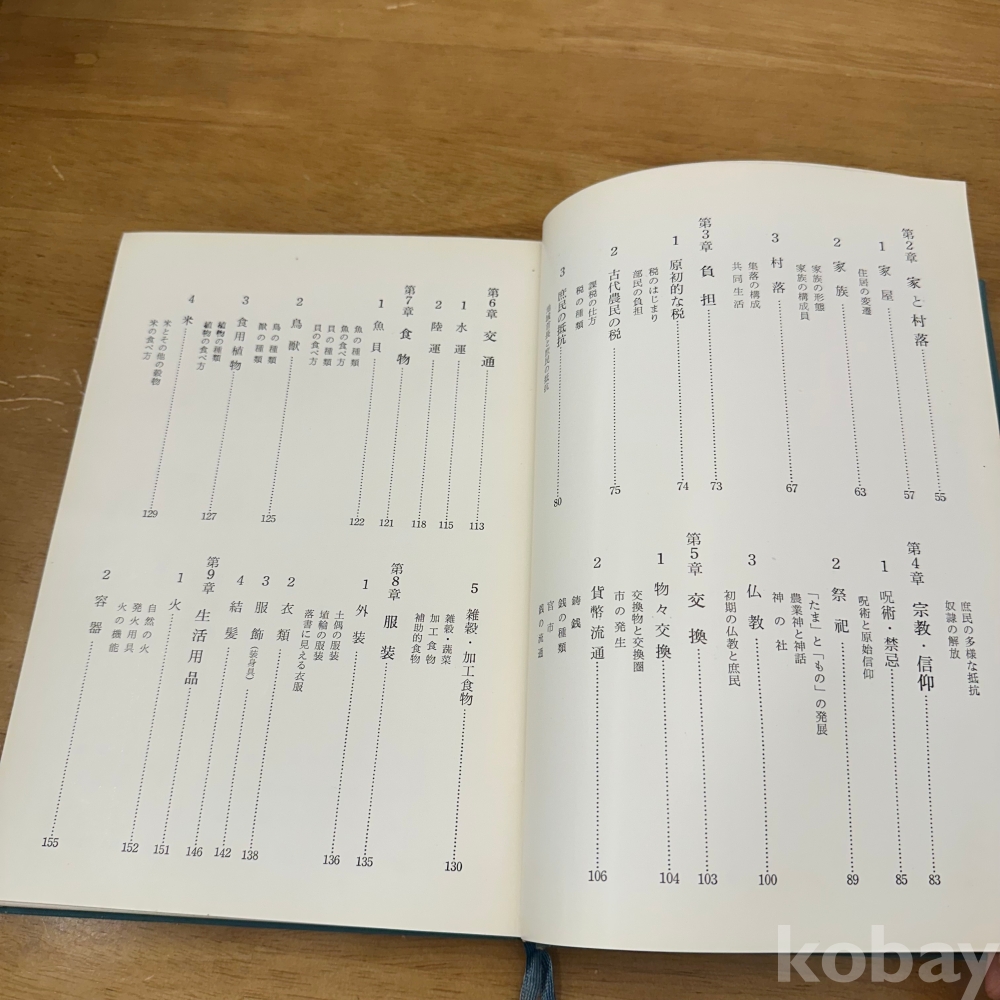 第2章 家と村落 55
1 家屋 57
住居の変遷
2 家族 63
家族の形態
家族の構成員
3 村落 67
集落の構成
共同生活
第3章 負担 73
1 原初的な税 74
税のはじまり
部民の負担
2 古代農民の税 75
課税の仕方
税の種類
3 庶民の抵抗 80
庶民の多様な抵抗
奴隷の解放
第4章 宗教・信仰 83
1 呪術・禁忌 85
呪術と原始信仰
2 祭祀 89
「たま」と「もの」の発展
農業神と神話
神の社
3 仏教 100
初期の仏教と庶民
第5章 交換 103
1 物々交換 104
交換物と交換圏
市の発生
2 貨幣流通 106
鋳銭
銭の種類
官市
銭の流通
第6章 交通 113
1 水運 115
2 陸運 118
第7章 食物 121
1 魚貝 122
魚の種類
魚の食べ方
貝の種類
貝の食べ方
2 鳥獣 125
鳥の種類
獣の種類
3 食用植物 127
植物の種類
植物の食べ方
4 米 129
米とその他の穀物
米の食べ方
5 雑穀・加工食物 130
雑穀・蔬菜
加工食物
補助的食物
第8章 服装 135
1 外装 136
土偶の服装
埴輪の服装
落書に見える衣服
2 衣類 138
3 服飾(装身具) 142
4 結髪 146
第9章 生活用品 151
1 火 152
自然の火
発火用具
火の機能
2 容器 155
kobay